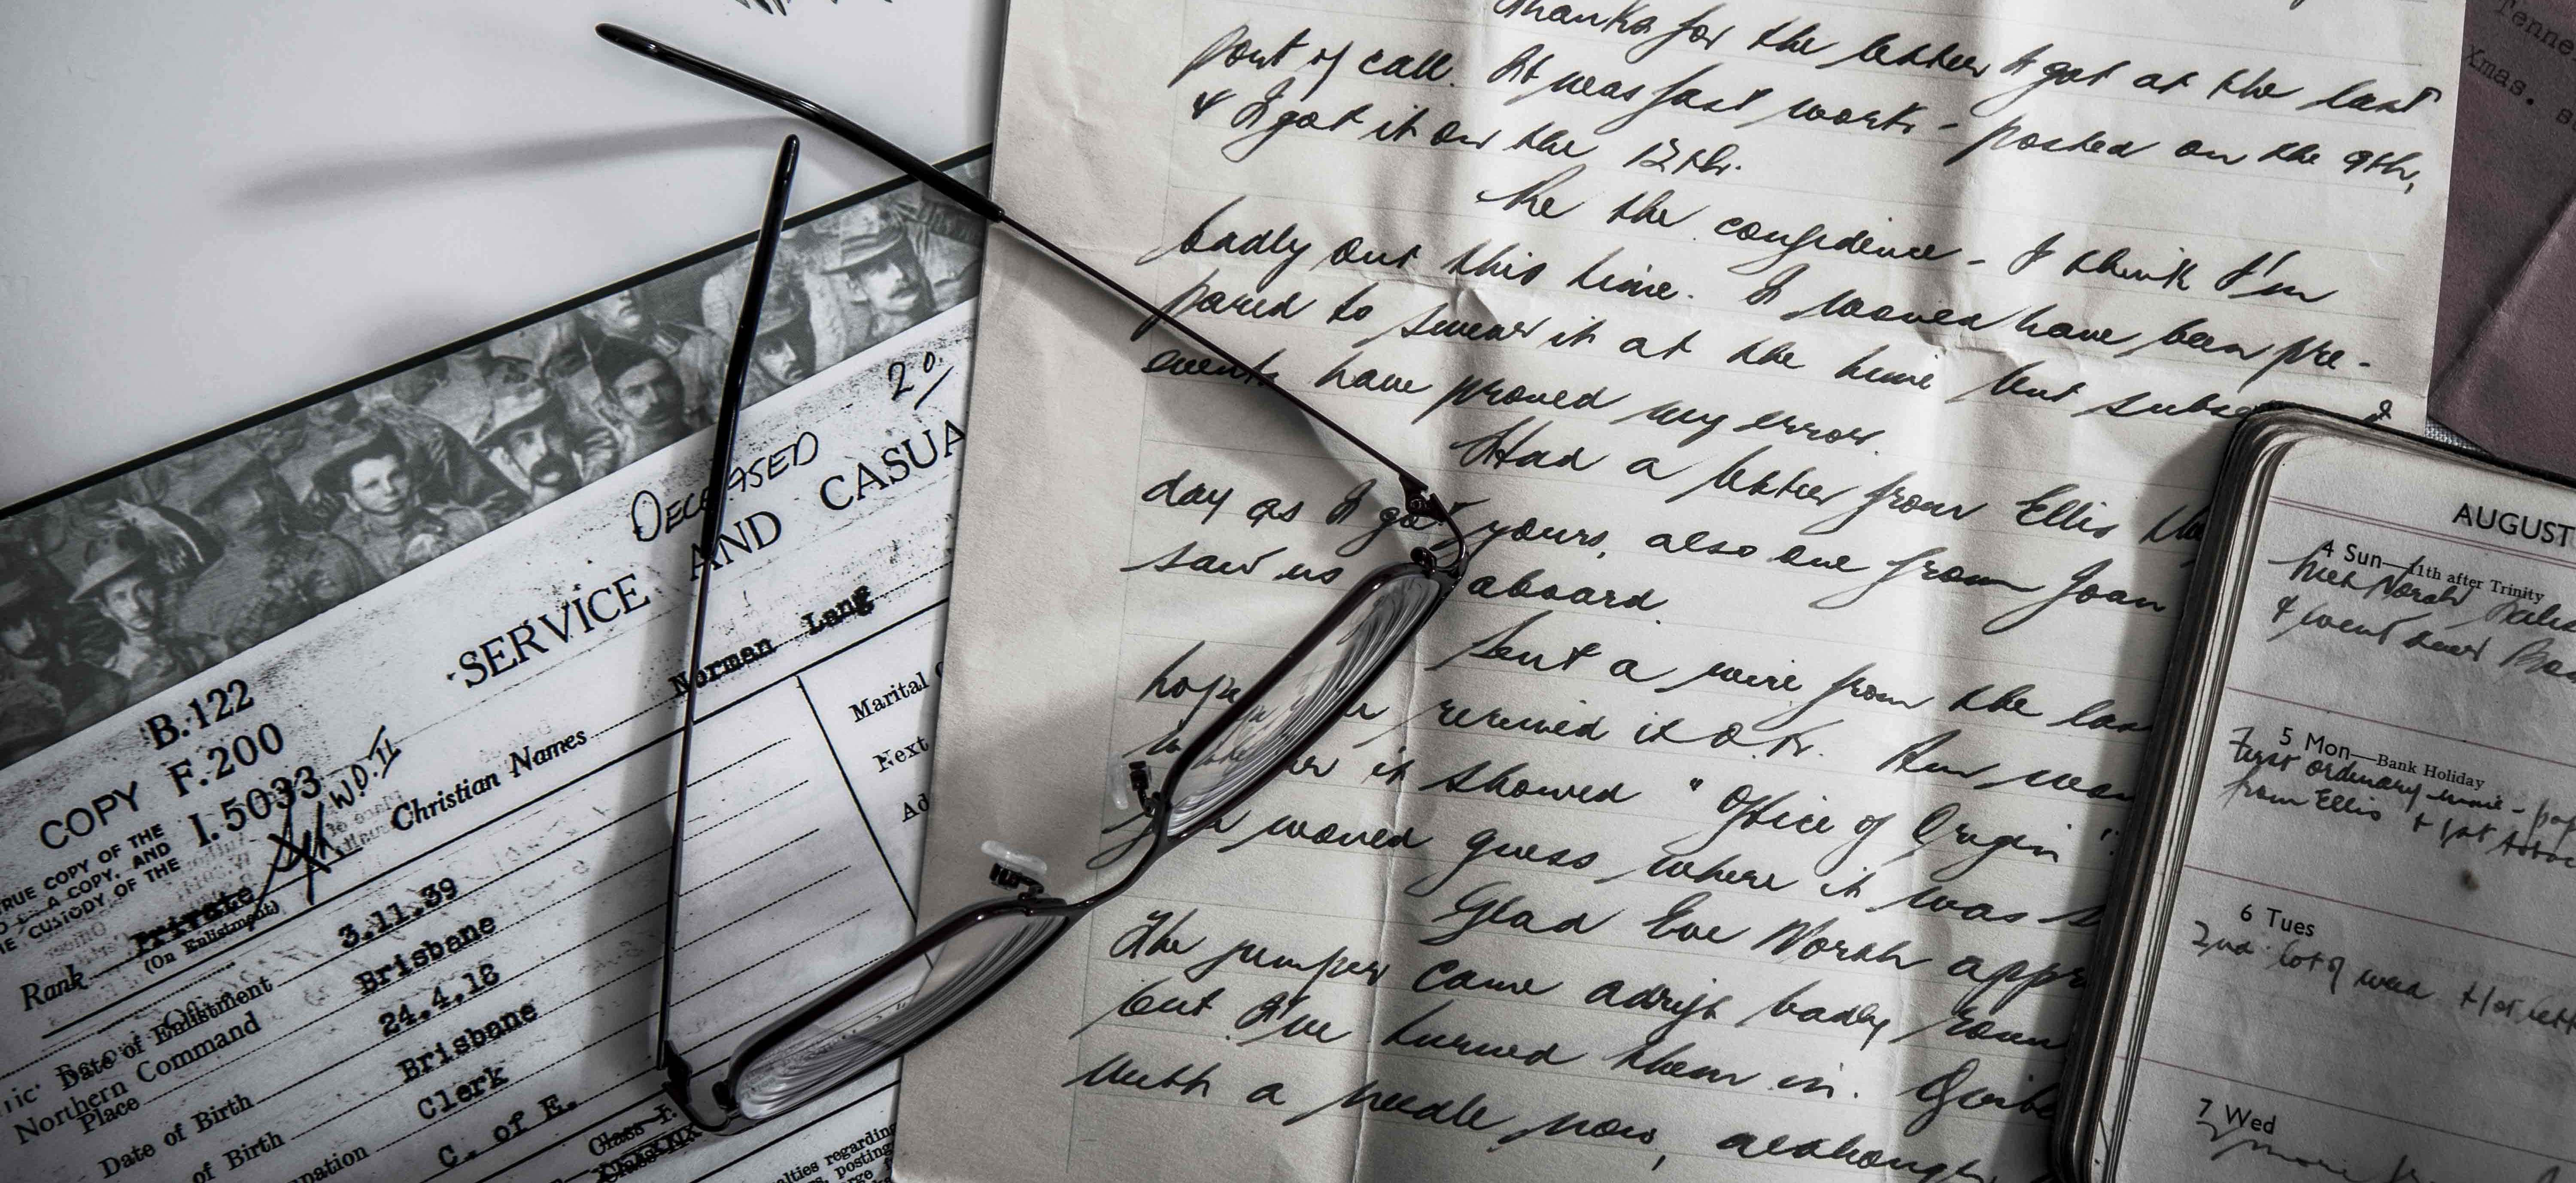 DECEASED
SERVICE AND CASUA
Norman Lang
B.122
COPY F.200
I.5033
W.D.II
TRUE COPY OF THE
A COPY, AND
THE CUSTODY OF THE
Christian Names
Marital
Next
Ad
Rank Private
(On Enlistment)
Date of Enlistment 3.11.39
Northern Command
Place Brisbane
Date of Birth 24.4.18
of Birth Brisbane
pation Clerk
C. of E.
Class
alties regarding
posting
Thanks for the letter I got at the last
port of call. It was fast work - posted on the 9th,
& I got it on the 12th.
Re the confidence - I think I'm
badly out this time. I would have been pre-
pared to swear it at the time but subse
events have proved my error.
Had a letter from Ellis the
day as I got yours, also one from Joan
saw us aboard.
Sent a wire from the las
hope received it O.K.
it showed "Office of Origin"
would guess where it was s
Glad Eve Norah appr
The jumper came adrift badly roun
but I've turned them in.
with a needle now, although
Tenne
Xmas.
AUGUST
4 Sun—11th after Trinity
Met Norah
& went
5 Mon—Bank Holiday
First ordinary
from Ellis
6 Tues
2nd lot of
7 Wed